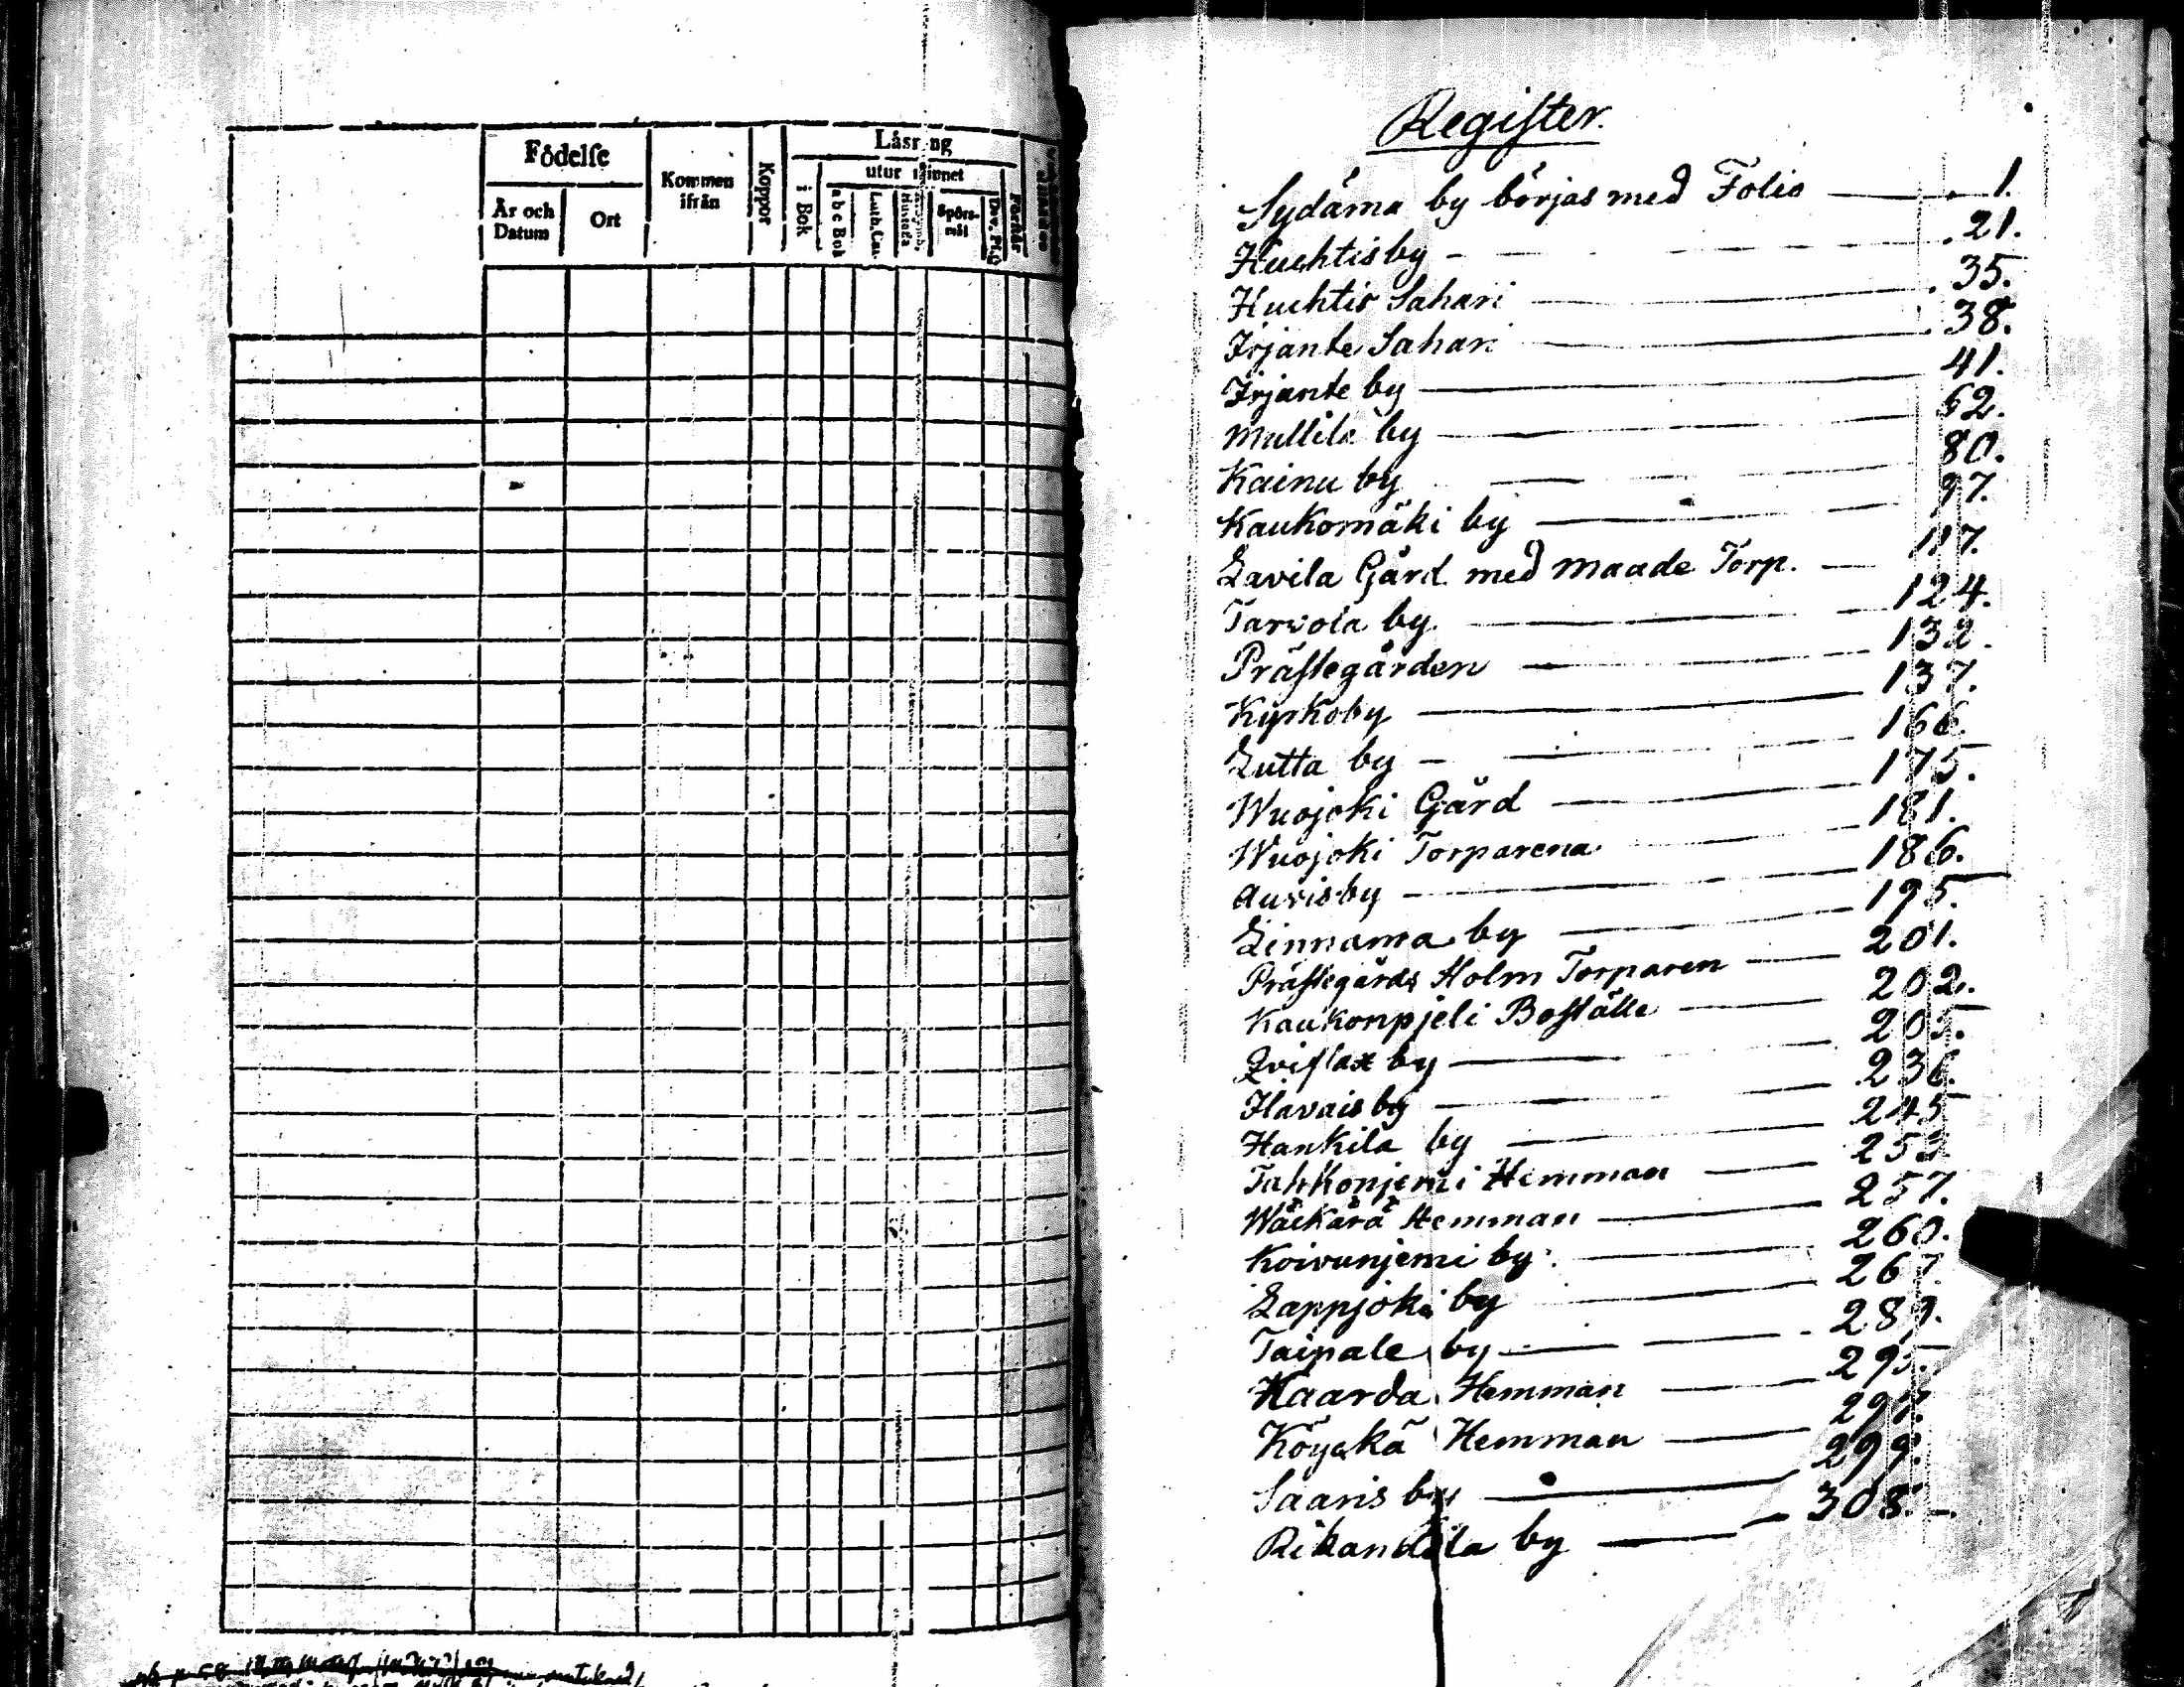 Födelse
År och Datum
Ort
Kommen ifrån
Koppor
Läsning
i Bok
utur minnet
a b c Bok
Luth. Cat.
Hustafla
Spörsmål
Dav. Ps.
Förstår
Register.
Sydäma by börjas med Folio 1.
Huchtis by 21.
Huchtis Sahari 35.
Irjante Sahari 38.
Irjante by 41.
Mullila by 62.
Kainu by 80.
Kaukomäki by 97.
Lavila Gård med Maade Torp. 117.
Tarvola by 124.
Prästegården 132.
Kyrkoby 137.
Lutta by 166.
Wuojoki Gård 175.
Wuojoki Torparena 181.
Auvis by 186.
Linnama by 195.
Prästegårds Holm Torparen 201.
Kaukonpjeli Boställe 202.
Qviflax by 205.
Havais by 236.
Hankila by 245
Tahkonjemi Hemman 253
Wäckärä Hemman 257.
Koivunjemi by 260.
Lappjoki by 267.
Taipale by 289.
Kaarda Hemman 295.
Köyckä Hemman 297.
Saaris by 299.
Rikandila by 308.